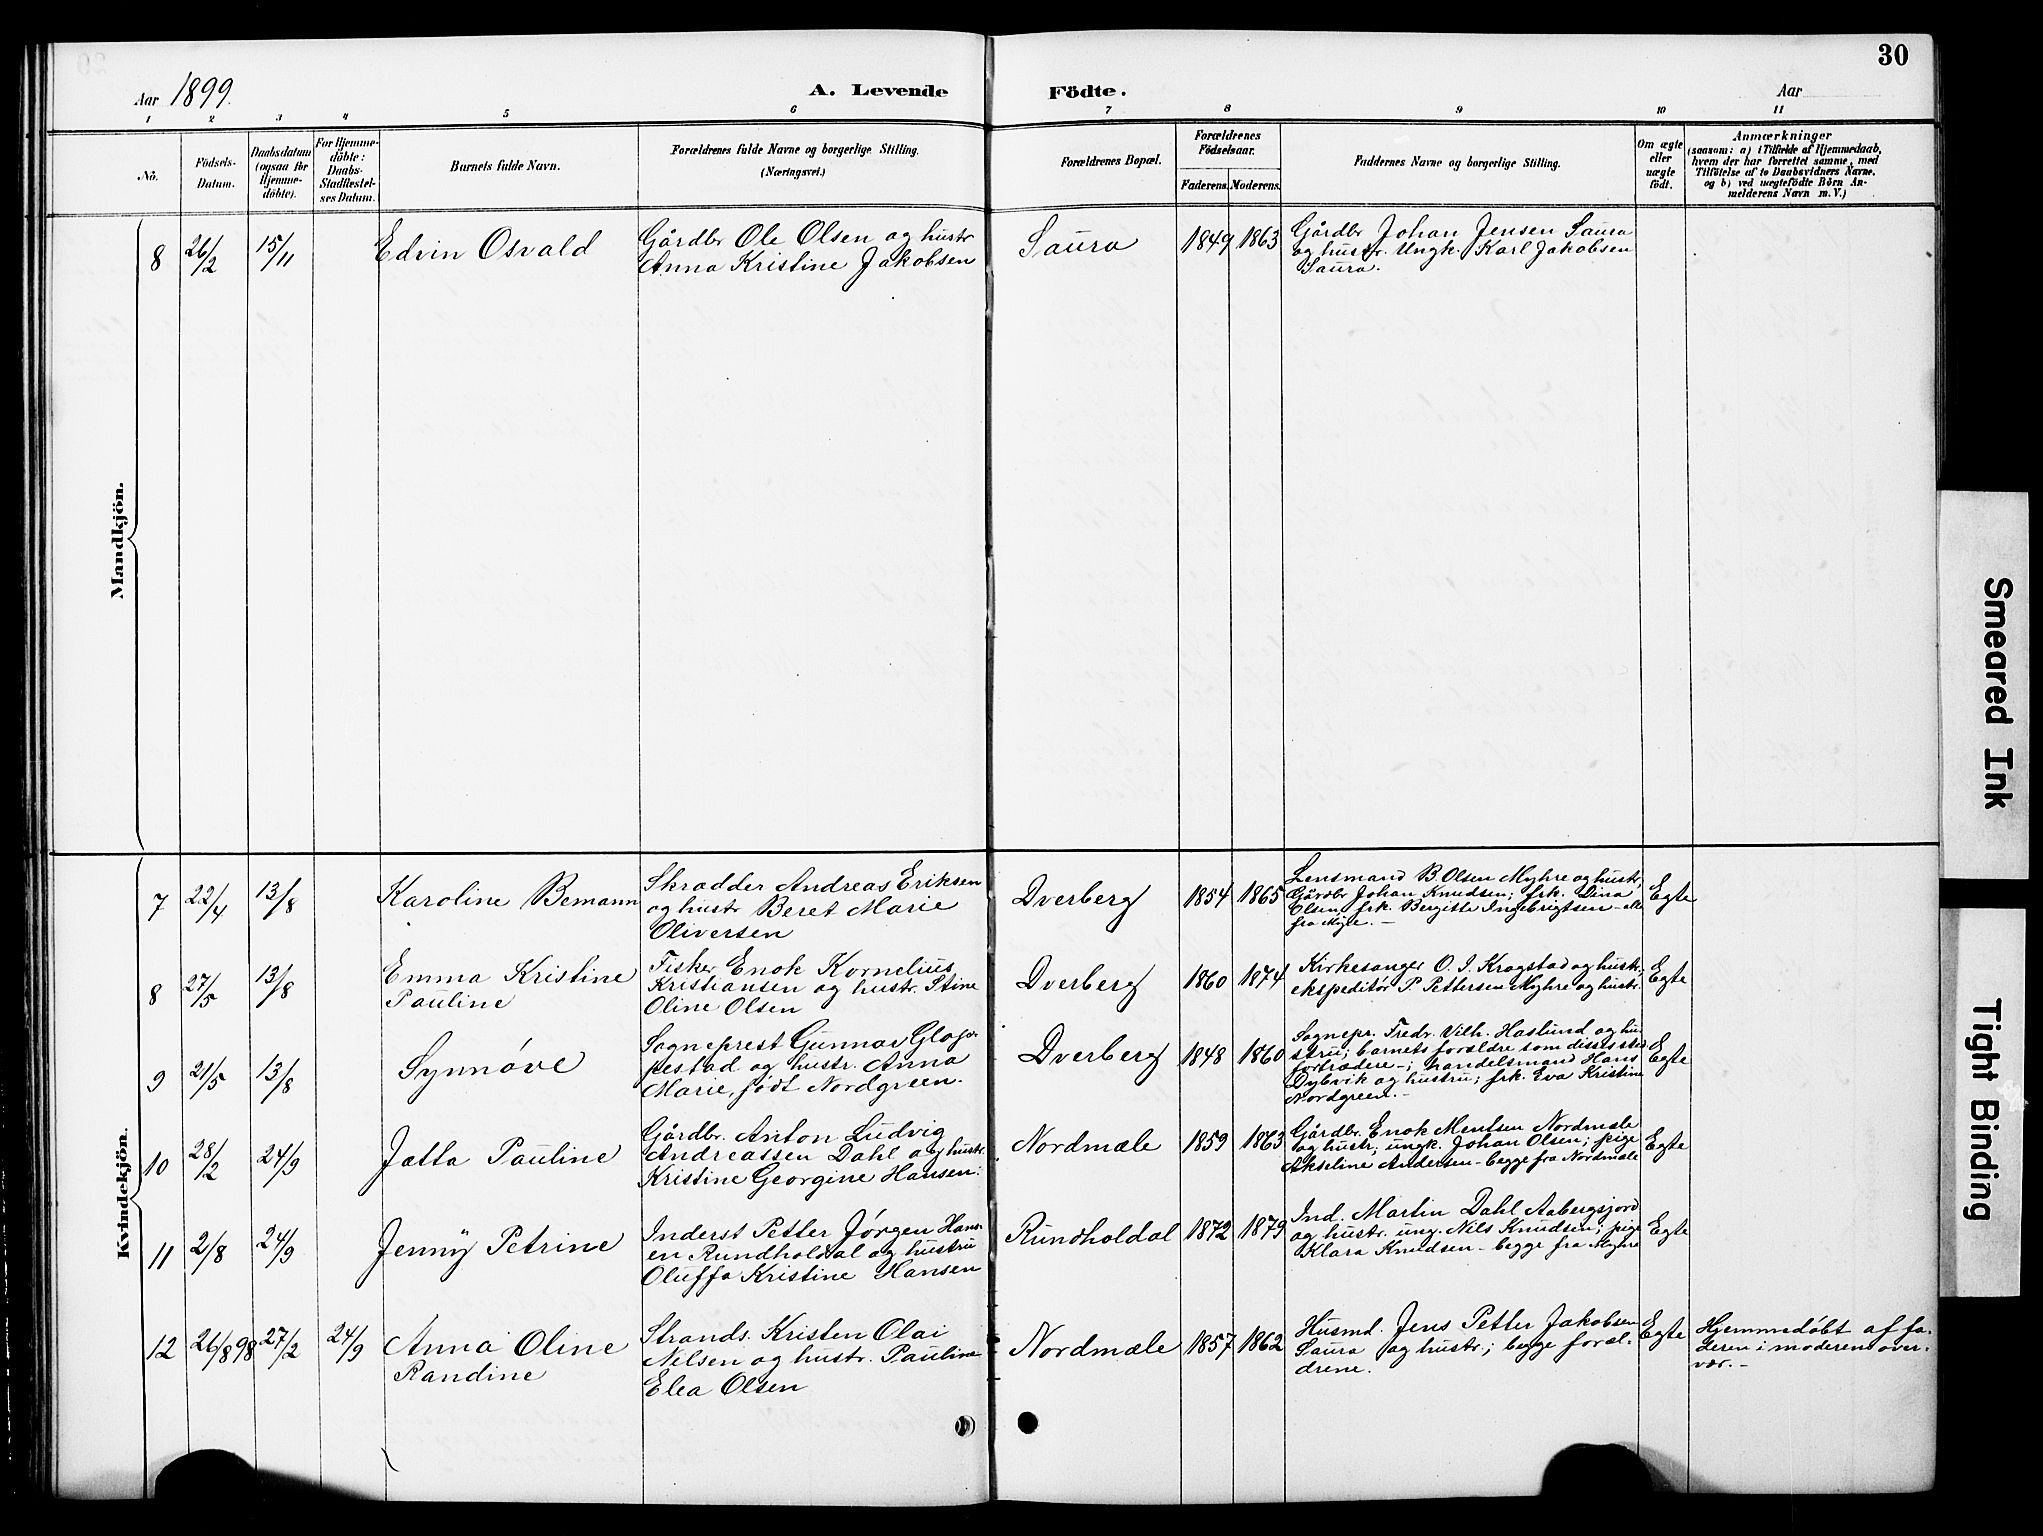 30
Aar 1899.
A. Levende Födte.
Aar
1 2 3 4 5 6 7 8 9 10 11
No.
Födsels-
Datum.
Daabsdatum
(ogsaa för
Hjemme-
döbte).
For Hjemme-
döbte:
Daabs-
Stadfæstel-
ses Datum.
Barnets fulde Navn.
Forældrenes fulde Navne og borgerlige Stilling.
(Næringsvei.)
Forældrenes Bopæl.
Forældrenes
Födselsaar.
Faderens.
Moderens.
Faddernes Navne og borgerlige Stilling.
Om ægte
eller
uægte
födt.
Anmærkninger
(saasom: a) i Tilfælde af Hjemmedaab,
hvem der har forrettet samme, med
Tilföielse af to Daabsvidners Navne,
og b) ved uægtefödte Börn An-
melderens Navn m. V.)
Mandkjön.
8 26/2 15/11 Edvin Osvald
Gårdbr Ole Olsen og hustr
Anna Kristine Jakobsen
Saura 1849 1863
Gårdbr Johan Jensen Saura
og hustr. Ungk. Karl Jakobsen
Saura.
Kvindekjön.
7 22/4 13/8 Karoline Bemann
Skrædder Andreas Eriksen
og hustr Beret Marie
Oliversen
Dverberg 1854 1865
Lensmand B. Olsen Myhre og hustr,
Gårdbr Johan Knudsen; frk. Dina
Olsen, frk. Bergitte Ingebrigtsen – alle
fra Myre. –
Egte
8 27/5 13/8 Emma Kristine
Pauline
Fisker Enok Kornelius
Kristiansen og hustr. Stine
Oline Olsen
Dverberg 1860 1874
Kirkesanger O. J. Kragstad og hustr;
ekspeditör P. Pettersen Myhre og hustr.
Egte
9 2/5 13/8 Synnøve
Sogneprest Gunnar Glop-
pestad og hustr. Anna
Marie, født Nordgreen.
Dverberg 1848 1860
Sognepr. Fredr. Vilh. Haslund og hu-
stru; barnets forældre som disses sted
fortrædere –; handelsmand Hans
Dybvik og hustru; frk. Eva Kristine
Nordgreen. –
Egte
10 28/2 24/9 Jatta Pauline
Gårdbr. Anton Ludvig
Andreassen Dahl og hustr.
Kristine Georgine Hansen.
Nordmæle 1859 1863
Gårdbr. Enok Mentsen Nordmæle
og hustr; ungk. Johan Olsen; pige
Akseline Andersen – begge fra Nordmæle
Egte
11 2/8 24/9 Jenny Petrine
Inderst Petter Jørgen Hans-
en Rundholdal og hustru
Oluffa Kristine Hansen
Rundholdal 1872 1879
Ind. Martin Dahl Aabergsjord
og hustr. ung. Nils Knudsen; pige
Klara Knudsen – begge fra Myhre
Egte
12 26/8 98 27/2 24/9 Anna Oline
Randine
Strands. Kristen Olai
Nelsen og hustr. Pauline
Elea Olsen
Nordmæle 1857 1862
Husmd. Jens Petter Jakobsen
Saura og hustr.; begge foræl-
drene.
Egte
Hjemmedøbt af fa-
deren i moderens over-
vær. –
Smeared Ink
Tight Binding